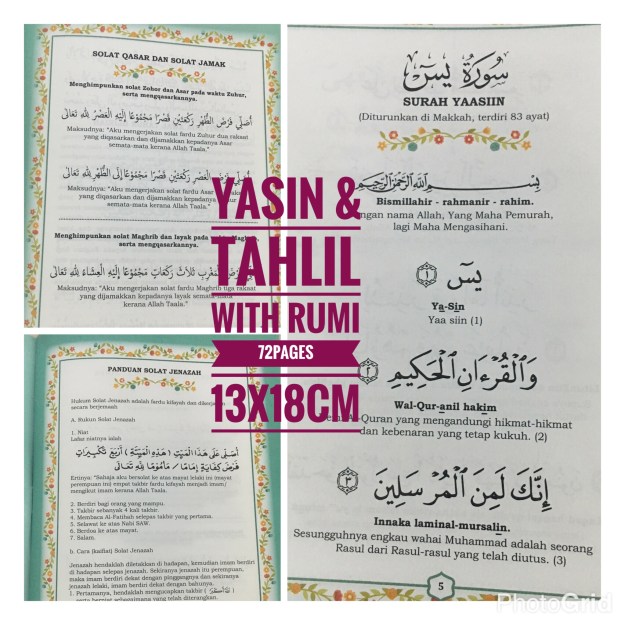 SOLAT QASAR DAN SOLAT JAMAK
Menghimpunkan solat Zohor dan Asar pada waktu Zuhur,
serta mengqasarkannya.
أُصَلِّى فَرْضَ الظُّهْرِ رَكْعَتَيْنِ قَصْرًا مَجْمُوْعًا إِلَيْهِ الْعَصْرُ لِلّٰهِ تَعَالَى
Maksudnya: "Aku mengerjakan solat fardu Zuhur dua rakaat
yang diqasarkan dan dijamakkan kepadanya Asar
semata-mata kerana Allah Taala."
أُصَلِّى فَرْضَ الْعَصْرِ رَكْعَتَيْنِ قَصْرًا مَجْمُوْعًا إِلَى الظُّهْرِ لِلّٰهِ تَعَالَى
Maksudnya: "Aku mengerjakan solat fardu Asar
yang diqasarkan dan dijamakkan kepadanya Zuhur
semata-mata kerana Allah Taala."
Menghimpunkan solat Maghrib dan Isyak pada waktu Maghrib,
serta mengqasarkannya.
الْمَغْرِبِ ثَلَاثَ رَكَعَاتٍ مَجْمُوْعًا إِلَيْهِ الْعِشَاءُ لِلّٰهِ تَعَالَى
Maksudnya: "Aku mengerjakan solat fardu Maghrib tiga rakaat
yang dijamakkan kepadanya Isyak semata-mata
kerana Allah Taala."
PANDUAN SOLAT JENAZAH
Hukum Solat Jenazah adalah fardu kifayah dan dikerjakan
secara berjemaah.
A. Hukum Solat Jenazah
1. Niat
Lafaz niatnya ialah
أُصَلِّى عَلَى هَذَا الْمَيِّتِ (هَذِهِ الْمَيِّتَةِ) أَرْبَعَ تَكْبِيْرَاتٍ
فَرْضَ كِفَايَةٍ إِمَامًا / مَأْمُوْمًا لِلّٰهِ تَعَالَى
Ertinya: "Sahaja aku bersolat ke atas mayat lelaki ini (mayat
perempuan ini) empat takbir fardu kifayah menjadi imam/
mengikut imam kerana Allah Taala.
2. Berdiri bagi orang yang mampu.
3. Takbir sebanyak 4 kali takbir.
4. Membaca Al-Fatihah selepas takbir yang pertama.
5. Selawat ke atas Nabi SAW.
6. Berdoa ke atas mayat.
7. Salam.
b. Cara (kaifiat) Solat Jenazah
Jenazah hendaklah diletakkan di hadapan, kemudian imam berdiri
di hadapan selepas jenazah. Sekiranya jenazah itu perempuan,
maka imam berdiri dekat dengan pinggangnya dan sekiranya
jenazah lelaki, imam berdiri dekat dengan bahunya.
1. Pertamanya, hendaklah mengucapkan takbir
sambil berniat sebagaimana yang telah diterangkan.
YASIN &
TAHLIL
WITH RUMI
72PAGES
13X18CM
سُورَةُ يسٓ
SURAH YAASIIN
(Diturunkan di Makkah, terdiri 83 ayat)
بِسْمِ اللّٰهِ الرَّحْمٰنِ الرَّحِيْمِ
Bismillahir - rahmanir - rahim.
dengan nama Allah, Yang Maha Pemurah,
lagi Maha Mengasihani.
يسٓ ١
Ya-Sin
Yaa siin (1)
وَالْقُرْءَانِ الْحَكِيمِ ٢
Wal-Qur-anil hakim
Demi Al-Quran yang mengandungi hikmat-hikmat
dan kebenaran yang tetap kukuh. (2)
إِنَّكَ لَمِنَ الْمُرْسَلِينَ ٣
Innaka laminal-mursalin.
Sesungguhnya engkau wahai Muhammad adalah seorang
Rasul dari Rasul-rasul yang telah diutus. (3)
5
PhotoGrid